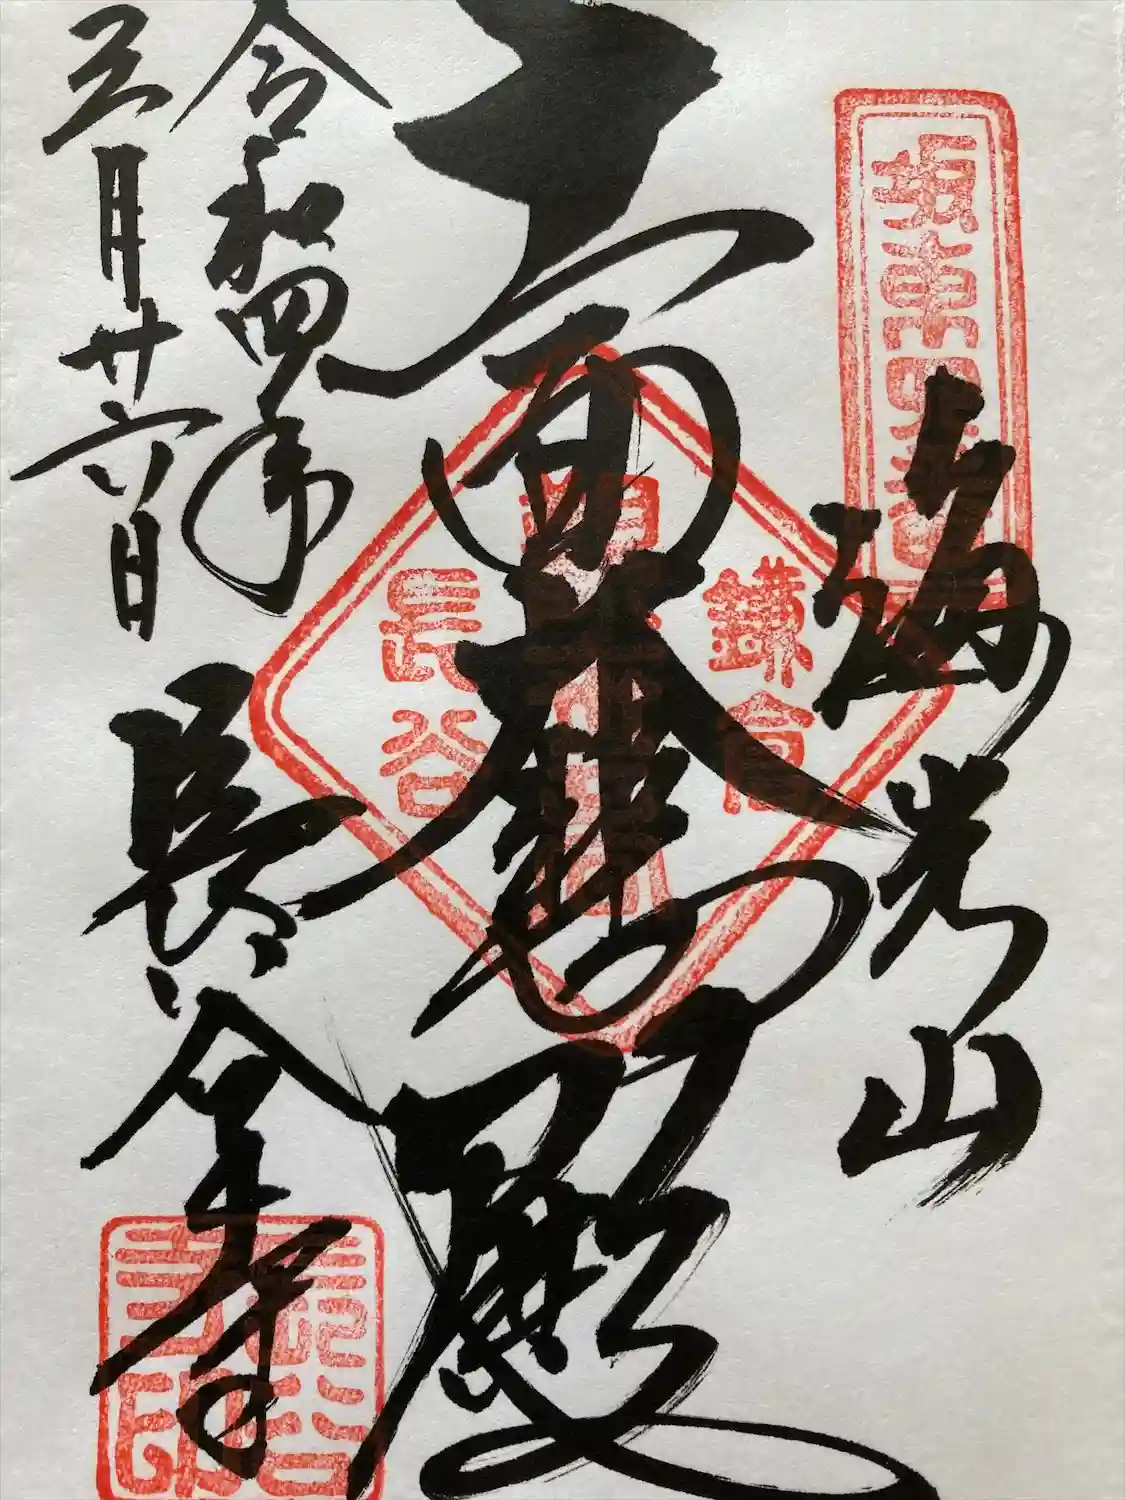 坂東四番
海光山
十一面大悲殿
鎌倉
長谷
令和四年
三月廿六日
長谷寺
長谷
寺印